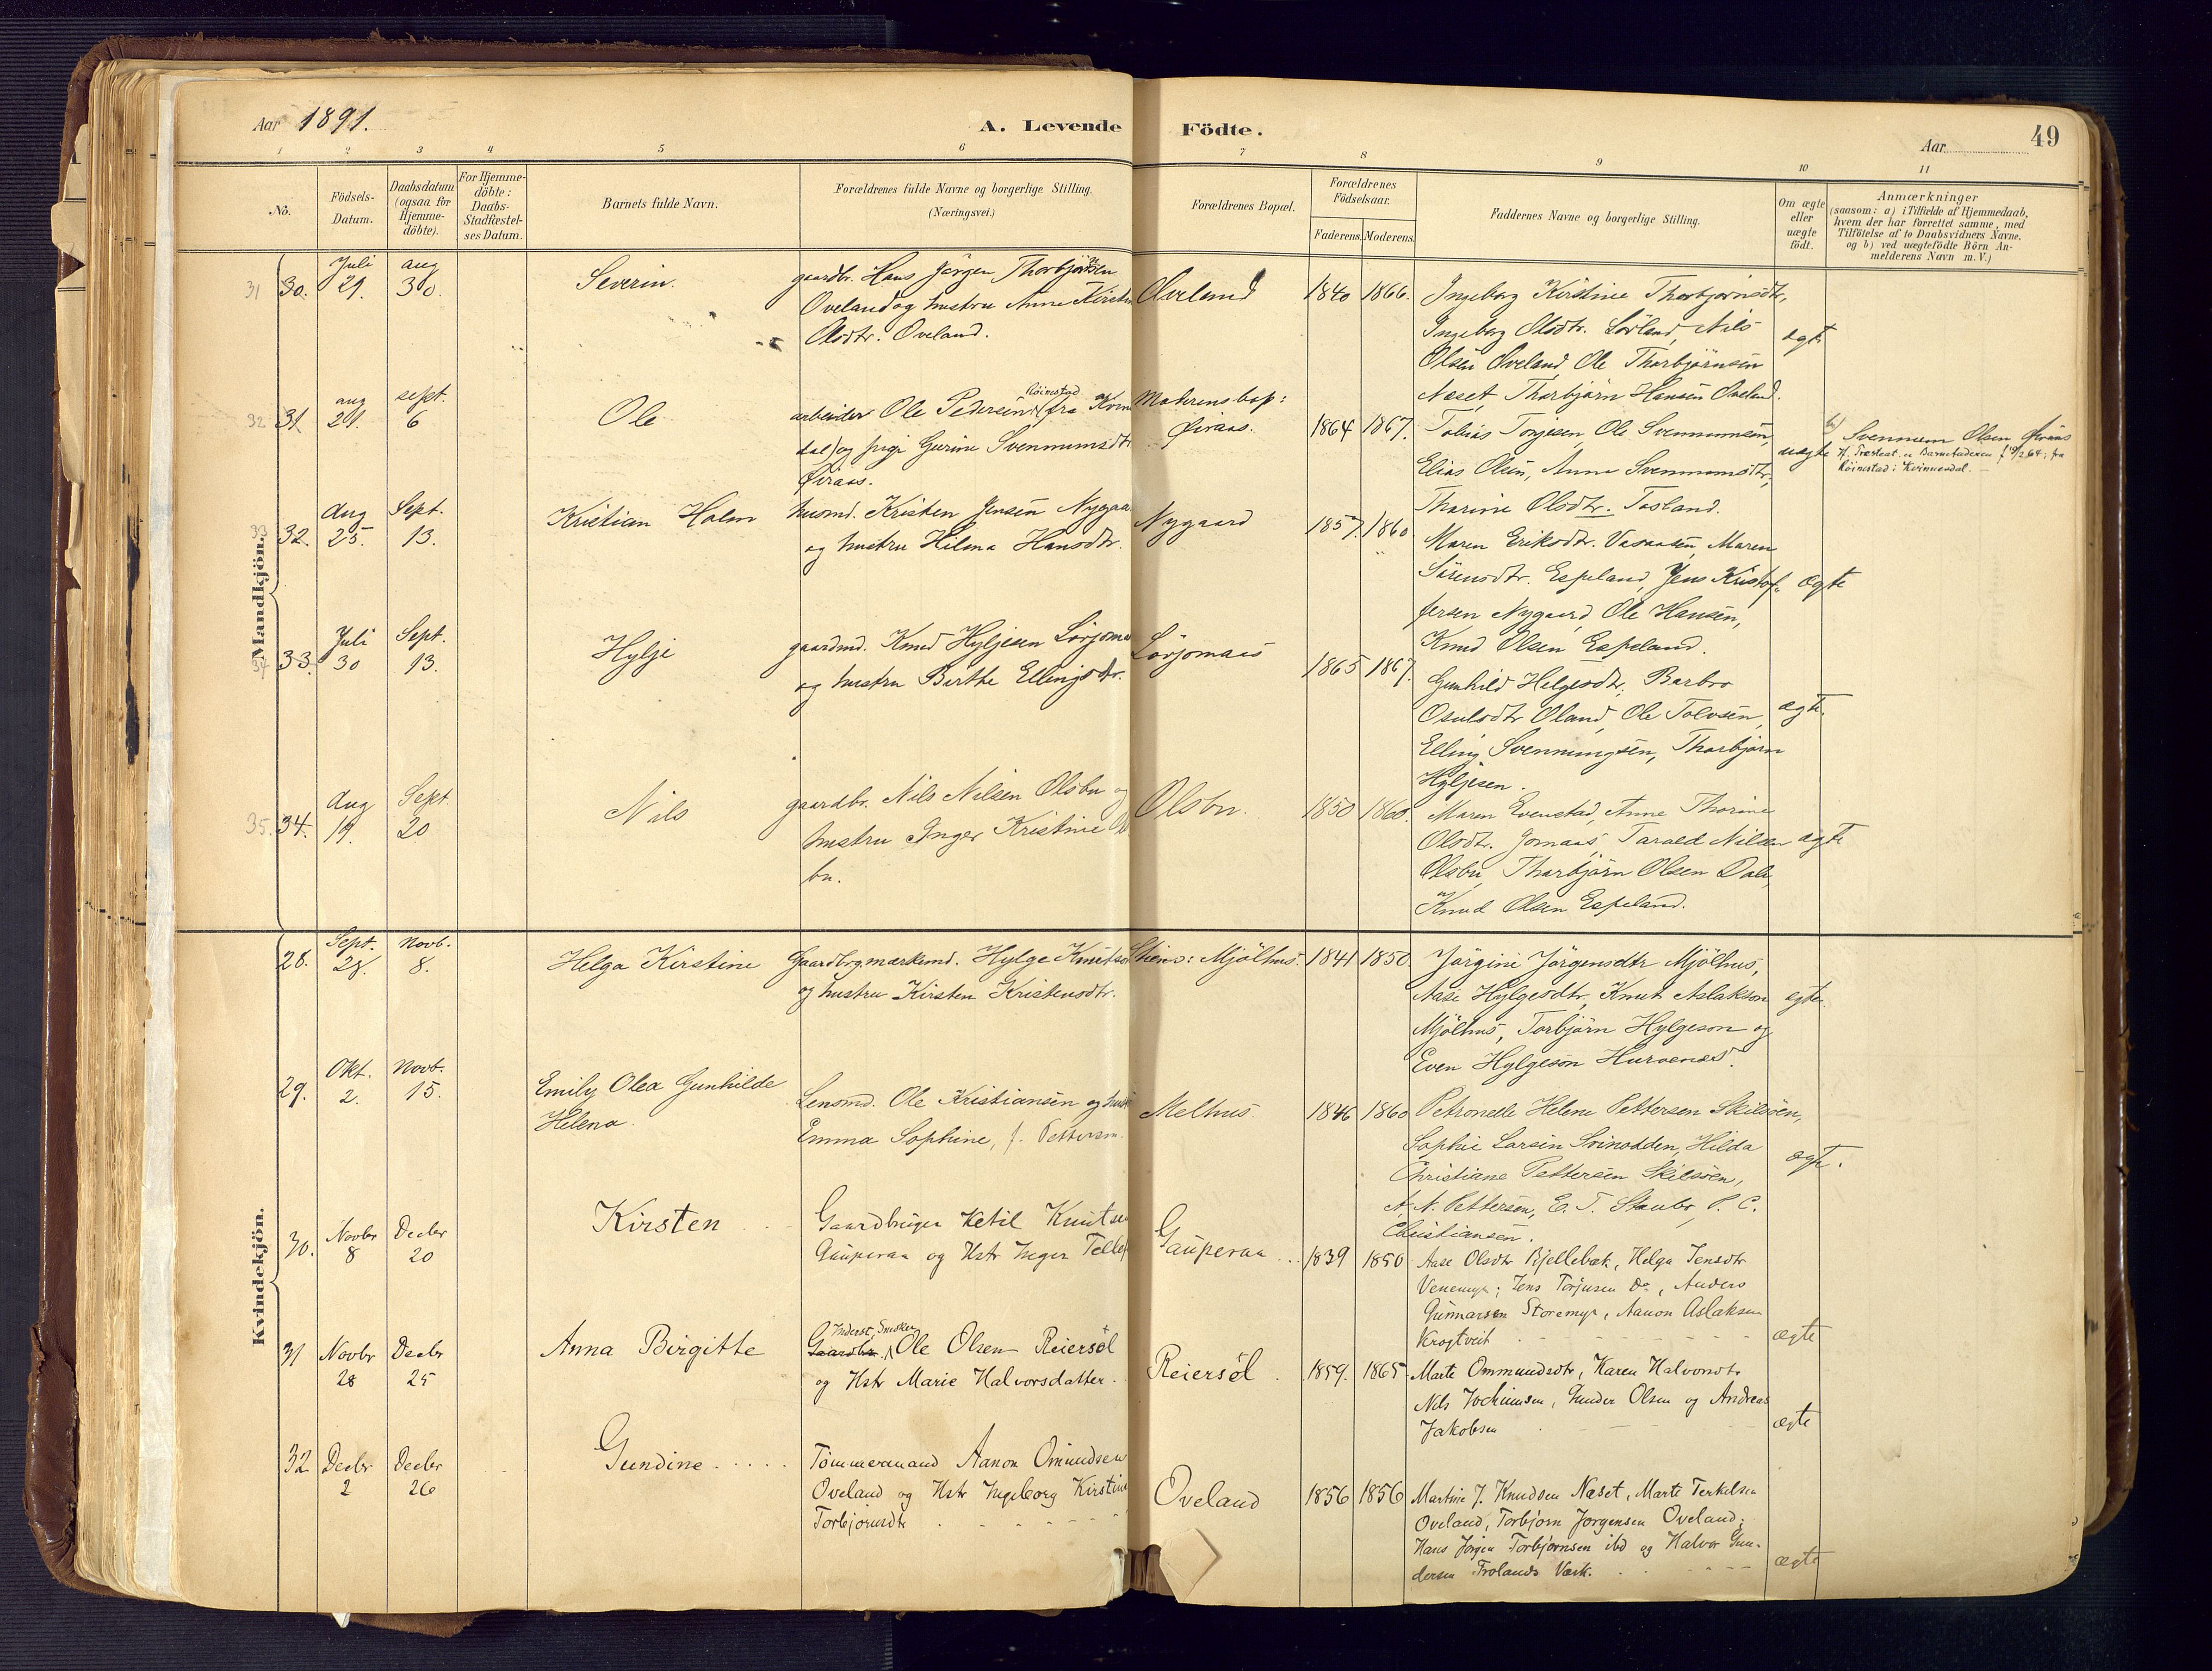 Aar 1891.
A. Levende Födte.
Aar
49
1 2 3 4 5 6 7 8 9 10 11
No.
Födsels-
Datum.
Daabsdatum
(ogsaa for
Hjemme-
döbte).
For Hjemme-
döbte:
Daabs-
Stadfæstel-
ses Datum.
Barnets fulde Navn.
Forældrenes fulde Navne og borgerlige Stilling.
(Næringsvei.)
Forældrenes Bopæl.
Forældrenes
Födselsaar.
Faderens. Moderens.
Faddernes Navne og borgerlige Stilling.
Om ægte
eller
uægte
födt.
Anmærkninger
(saasom: a) i Tilfælde af Hjemmedaab,
hvem der har forrettet samme, med
Tilföielse af to Daabsvidners Navne,
og b) ved uægtefödte Börn An-
melderens Navn m.V.)
Mandkjön.
31 30.
Juli
29.
aug
30.
Severin.
gaardbr. Hans Jörgen Thorbjörnsen
Oveland og hustru Anne Kirstin
Olsdtr. Oveland.
Oveland
1840 1866.
Ingeborg Kirstine Thorbjörnsdtr,
Ingeborg Olsdtr. Lörland, Nils
Olsen Oveland, Ole Thorbjörnsen
Næset, Thorbjörn Hansen Oveland.
ægte
32 31
aug
21.
sept.
6
Ole
arbeider Ole Pedersen Röinestad (fra Kvin
dal) og pige Gurine Svennumsdtr
Öiraas.
Moderens bop:
Öiraas.
1864 1867.
Tobias Torjesen, Ole Svennumsen,
Elias Olsen, Anne Svennumsdtr,
Thorine Olsdtr. Tosland.
uægte
b) Svennum Olsen Öiraas
Röinestad i Kvinnesdal.
33 32.
Aug
25.
Sept.
13.
Kristian Holm
husmd. Kristen Jensen Nygaa
og hustru Hilma Hansdtr.
Nygaard
1857. 1860
Maren Eriksdtr. Vasaasen, Maren
Sörensdtr. Espeland, Jens Kristof-
fersen Nygaard, Ole Hansen,
Knud Olsen Espeland.
ægte
34 33.
Juli
30
Sept.
13.
Hylje
gaardmd. Knud Hyljesen Lörjoma
og hustru Birthe Ellingsdtr.
Lörjomaas
1865 1867.
Gunhild Helgesdtr, Barbro
Osulsdtr Oland, Ole Tolvsen,
Elling Svenningsen, Thorbjörn
Hyljesen.
ægte.
35. 34.
Aug
19.
Sept.
20
Nils
gaardbr. Nils Nilsen Olsbu og
hustru Inger Kristine Ols
bu.
Olsbu.
1850 1860.
Maren Evenstad, Anne Thorine
Olsdtr. Jomaas, Tarald Nilsen
Olsbu, Thorbjörn Olsen Dale,
Knud Olsen Espeland.
ægte
Kvindekjön.
28.
Sept.
28.
Novb.
8.
Helga Kirstine
Gaardbrg. Hylge Knutson
og hustru Kirsten Kristensdtr.
Mjölhus.
1841 1850
Jörgine Jörgensdtr Mjölhus,
Aase Hylgesdtr, Knut Aslakson
Mjölhus, Torbjörn Hylgeson og
Even Hylgeson Hurvenæs.
ægte.
29.
Okt.
2.
Novb.
15.
Emily Olea Gunhilde
Helena.
Lensmd. Ole Kristiansen og hust
Emma Sophine, f. Pettersen.
Melhus
1846 1860
Petronelle Helene Pettersen Skilsöen,
Sophie Larsen Svinodden, Hilda
Christiane Pettersen Skilsöen,
A. N. Pettersen, E. T. Staubo, P. C.
Christiansen.
ægte.
30.
Novbr
8
Decbr
20
Kirsten
Gaardbruger Ketil Knutsen
Gauperaa og Hstr Inger Tellef
Gauperaa
1839 1850
Aase Olsdtr Bjellebæk, Helga Jensdtr
Venemyr; Jens Torjusen Do, Anders
Gunnarsen Storemyr, Aanon Aslaksen
Krogtveit
ægte
31
Novbr
28
Decbr
25
Anna Birgitte
Inderst, Snedker
Gaardbr. Ole Olsen Reiersöl
og Hstr Marie Halvorsdatter.
Reiersöl
1859. 1865
Marte Ommundsdtr, Karen Halvorsdtr
Nils Jochumsen, Gunder Olsen og Andreas
Jakobsen
ægte
32
Decbr
2
Decbr
26
Gundine
Tømmermand Aanon Omundsen
Oveland og Hstr Ingeborg Kirstine
Torbjörnsdtr
Oveland
1856 1856
Martine J. Knudsen Næset, Marte Terkelsen
Oveland, Torbjørn Jørgensen Oveland;
Hans Jørgen Torbjørnsen ibd og Halvor Gun-
dersen Frolands Værk.
ægte